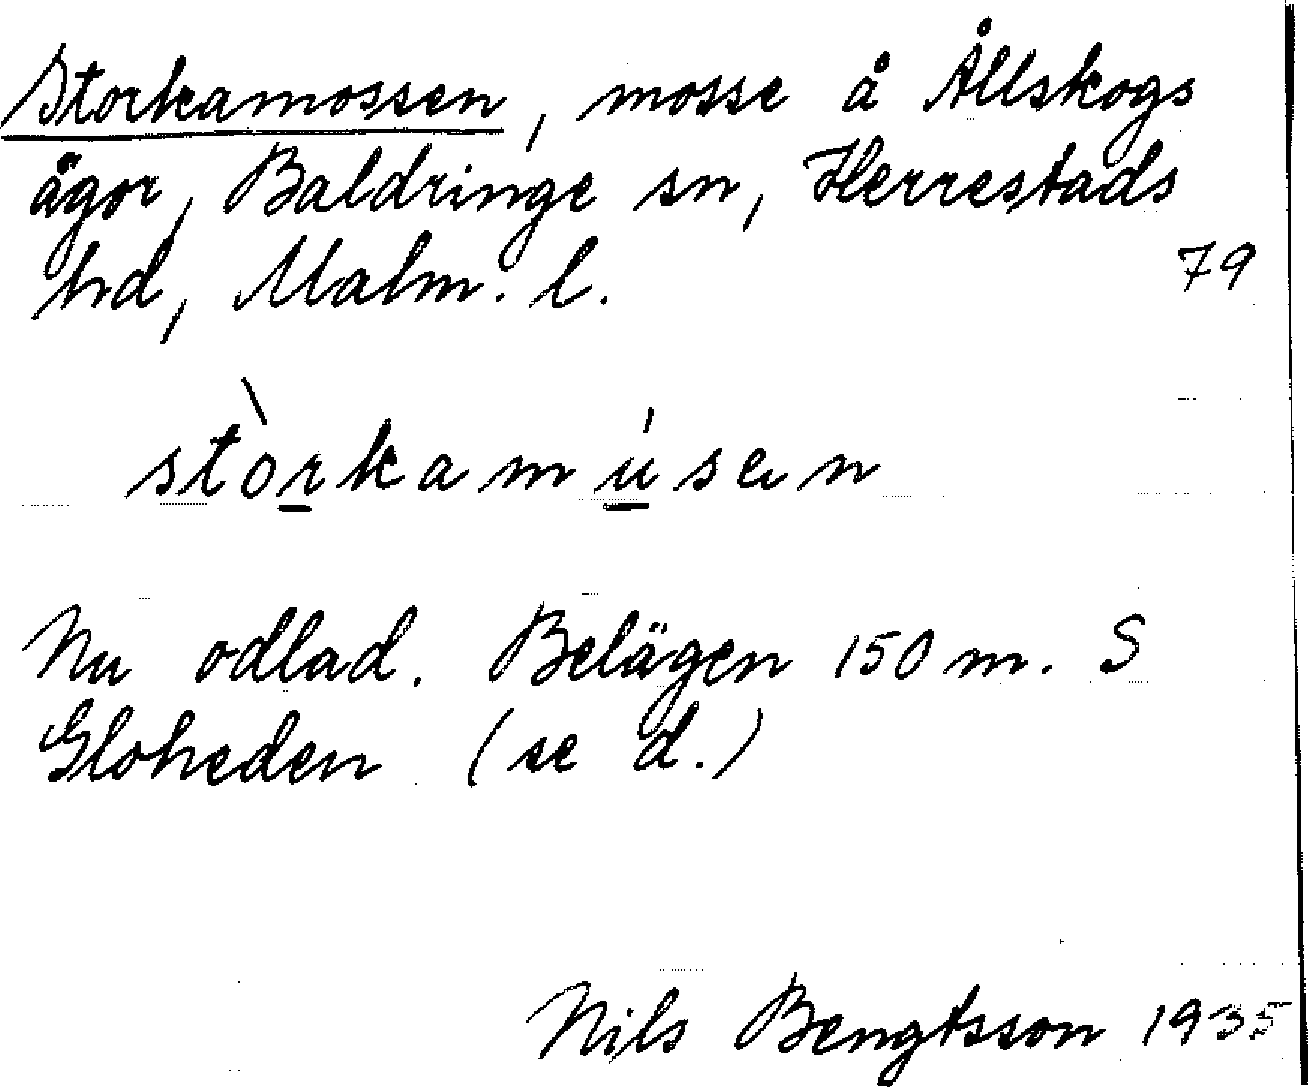 Storkamossen, mosse å Ållskogs
ägor, Baldringe sn, Herrestads
hd, Malm. l. 79
stòrkamúsen
Nu odlad. Belägen 150 m. S
Gloheden (se d.)
Nils Bengtsson 1935